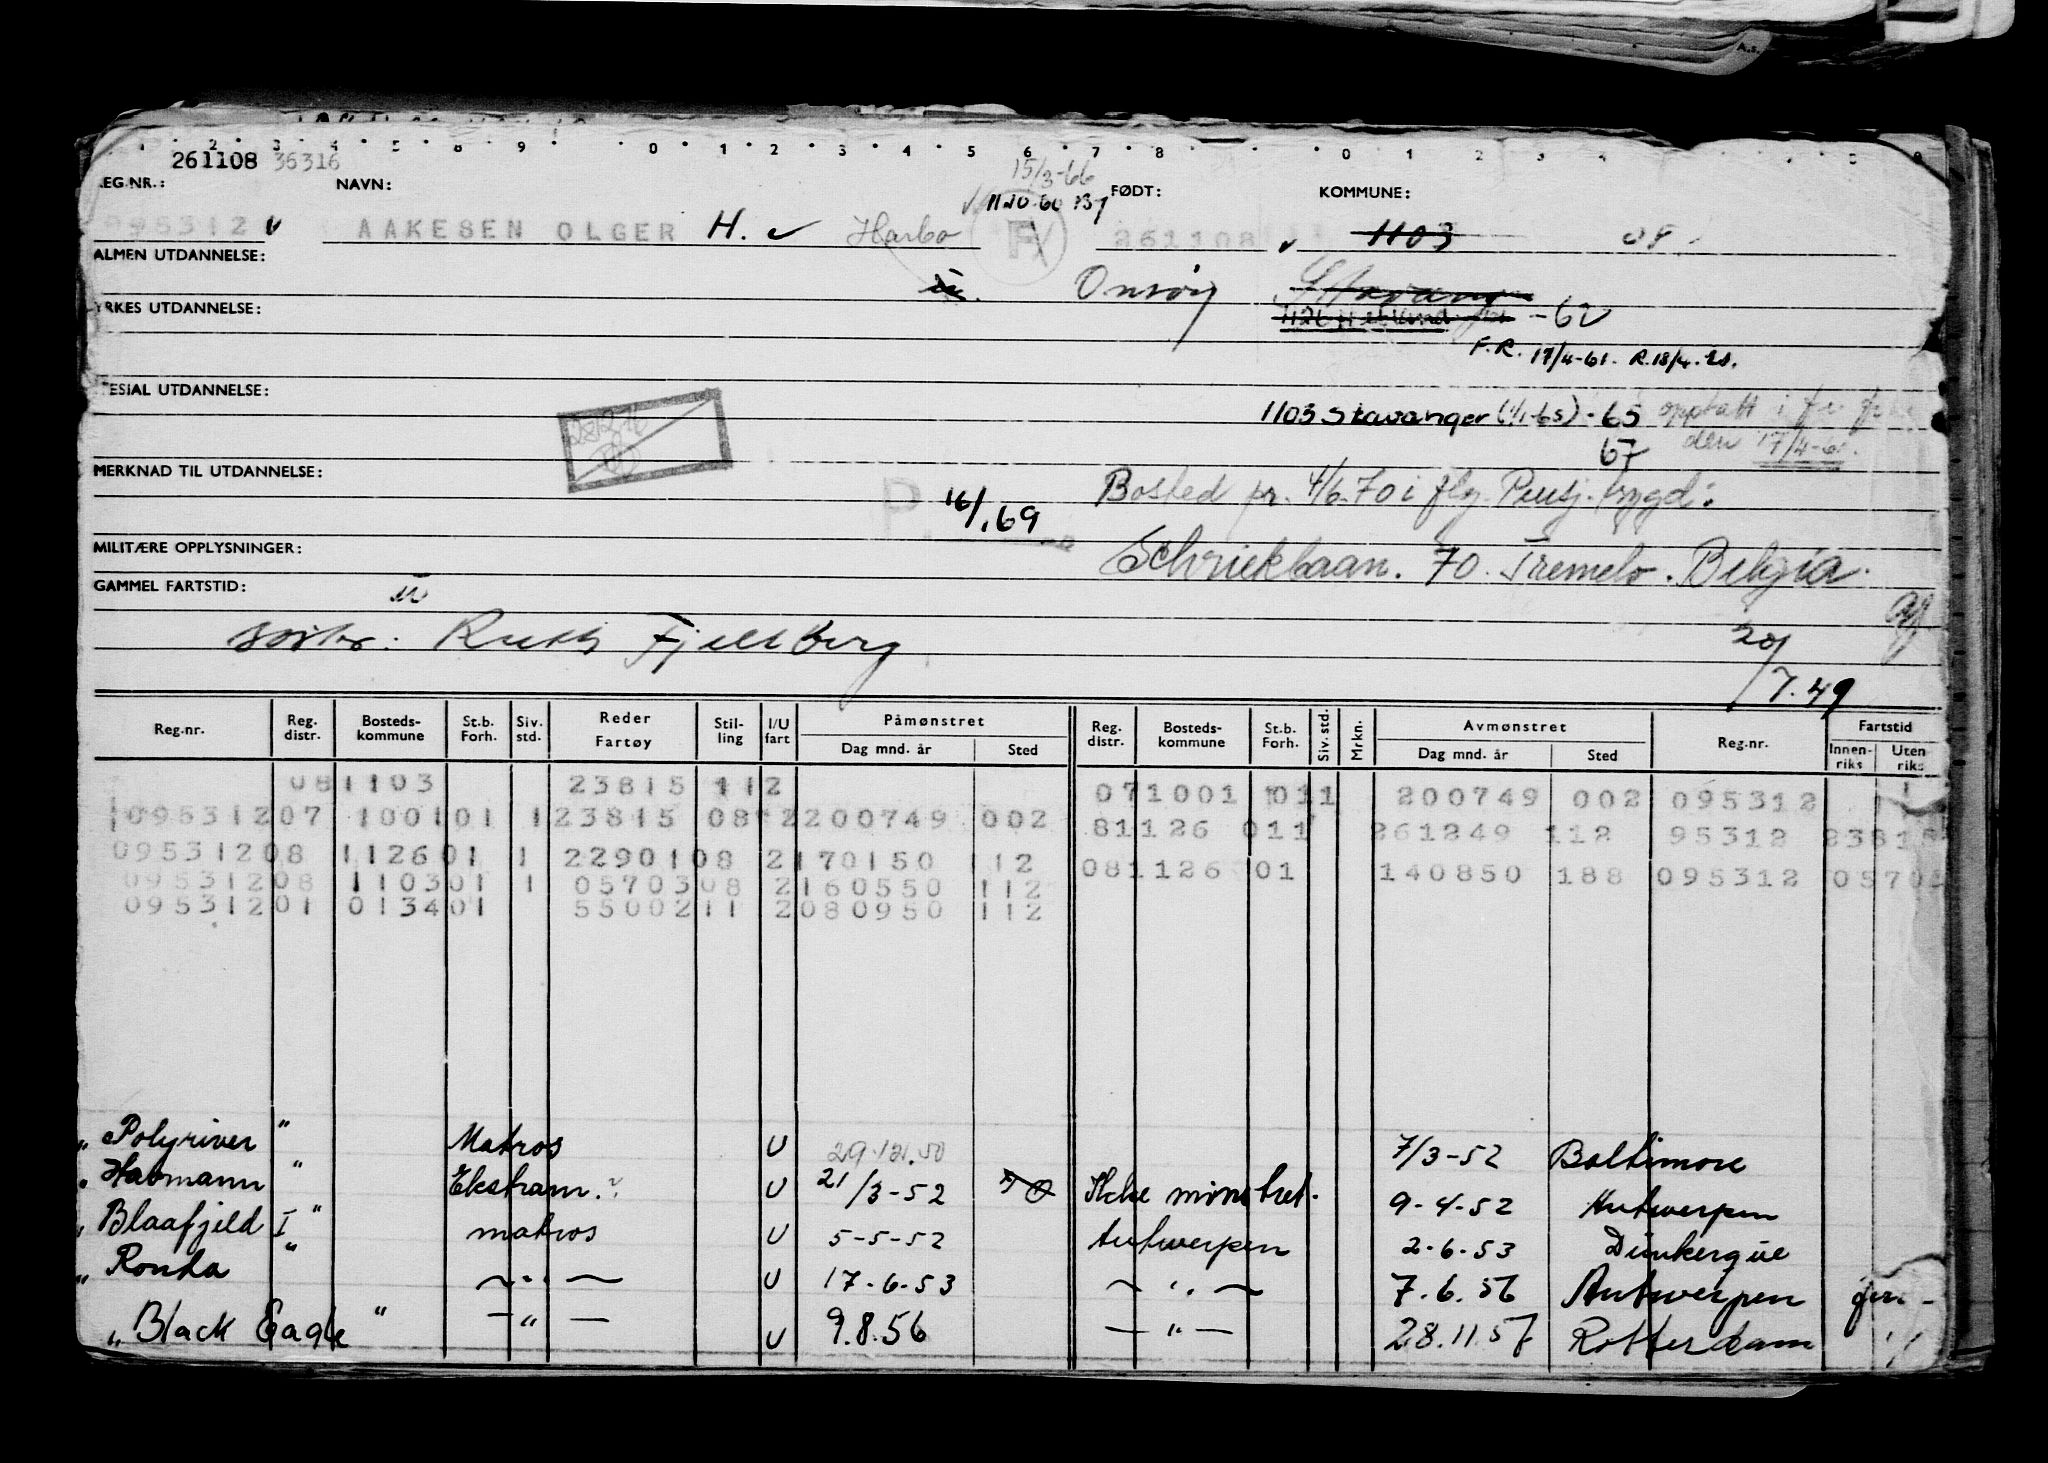 261108 36316
REG.NR.: NAVN: FØDT: KOMMUNE:
15/3-66
0953121 v AAKESEN OLGER H. v Harbo 261108 v 1103
ALMEN UTDANNELSE:
Onsøy Stavanger
YRKES UTDANNELSE: -62
F.R. 17/4-61. R.18/4.
SPESIAL UTDANNELSE:
1103 Stavanger (1/1-65) - 65 opptatt i
67 den 17/4-61.
MERKNAD TIL UTDANNELSE:
Bosted pr. 4/6-70 i flg. Pensj.trygd:
P. 16/1.69
MILITÆRE OPPLYSNINGER:
Schriekbaan. 70. Tremelo. Belgia.
GAMMEL FARTSTID:
søster: Ruth Fjellberg
20/7.49
Reg.nr. Reg. distr. Bosteds-kommune St.b. Forh. Siv. std. Reder Fartøy Stil-ling I/U fart Påmønstret Dag mnd. år Sted Reg. distr. Bosteds-kommune St.b. Forh. Siv. std. Mrkn. Avmønstret Dag mnd. år Sted Reg.nr. Fartstid Innen-riks Uten riks
081103 23815 112 071001 011 200749 002 095312
09531207 100101 1 23815 08 2 200749 002 81126 011 261249 112 95312 23815
09531208 112601 1 22901 08 2 170150 112 081126 01 140850 188 095312 0570
09531208 110301 1 05703 08 2 160550 112
09531201 013401 55002 11 2 080950 112
" Polyriver " Matros U 29.12.50 7/3-52 Baltimore
" Havmann " Ekstram. U 21/3-52 Ikke mønstret. 9-4-52 Antwerpen
" Blaafjeld I " matros U 5-5-52 Antwerpen 2-6-53 Dünkerque
" Ronda " — " — U 17-6-53 — " — 7.6.56 Antwerpen
" Black Eagle " — " — U 9.8.56 — " — 28.11.57 Rotterdam